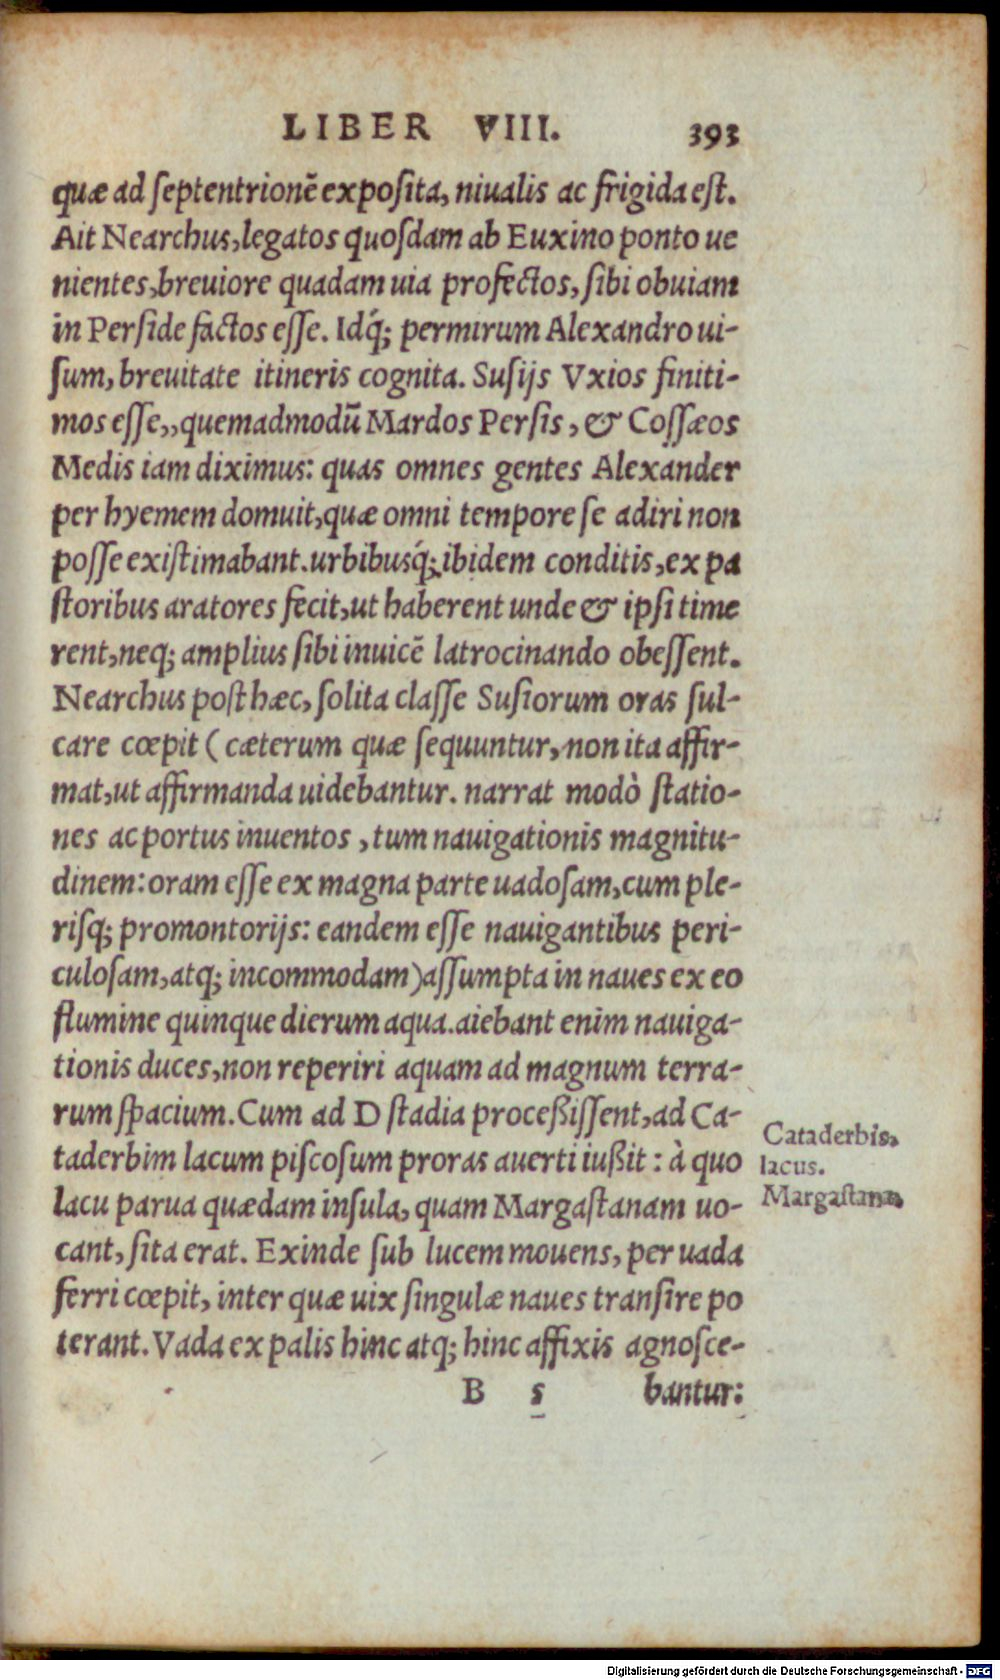 LIBER VIII. 393
quæ ad ſeptentrionē expoſita, niualis ac frigida eſt.
Ait Nearchus, legatos quoſdam ab Euxino ponto ue
nientes, breuiore quadam uia profectos, ſibi obuiam
in Perſide factos eſſe. Idq́; permirum Alexandro ui-
ſum, breuitate itineris cognita. Suſijs Vxios finiti-
mos eſſe,, quemadmodū Mardos Perſis, & Coſſæos
Medis iam diximus: quas omnes gentes Alexander
per hyemem domuit, quæ omni tempore ſe adiri non
poſſe exiſtimabant. urbibusq́; ibidem conditis, ex pa
ſtoribus aratores fecit, ut haberent unde & ipſi time
rent, neq; amplius ſibi inuicē latrocinando obeſſent.
Nearchus poſt hæc, ſolita claſſe Suſiorum oras ſul-
care cœpit (cæterum quæ ſequuntur, non ita affir-
mat, ut affirmanda uidebantur. narrat modò ſtatio-
nes ac portus inuentos, tum nauigationis magnitu-
dinem: oram eſſe ex magna parte uadoſam, cum ple-
riſq; promontorijs: eandem eſſe nauigantibus peri-
culoſam, atq; incommodam) aſſumpta in naues ex eo
flumine quinque dierum aqua. aiebant enim nauiga-
tionis duces, non reperiri aquam ad magnum terra-
rum ſpacium. Cum ad D ſtadia proceßiſſent, ad Ca-
taderbim lacum piſcoſum proras auerti iußit: à quo
lacu parua quædam inſula, quam Margaſtanam uo-
cant, ſita erat. Exinde ſub lucem mouens, per uada
ferri cœpit, inter quæ uix ſingulæ naues tranſire po
terant. Vada ex palis hinc atq; hinc affixis agnoſce-
B 5 bantur:
Cataderbis,
lacus.
Margaſtana.
Digitalisierung gefördert durch die Deutsche Forschungsgemeinschaft - DFG